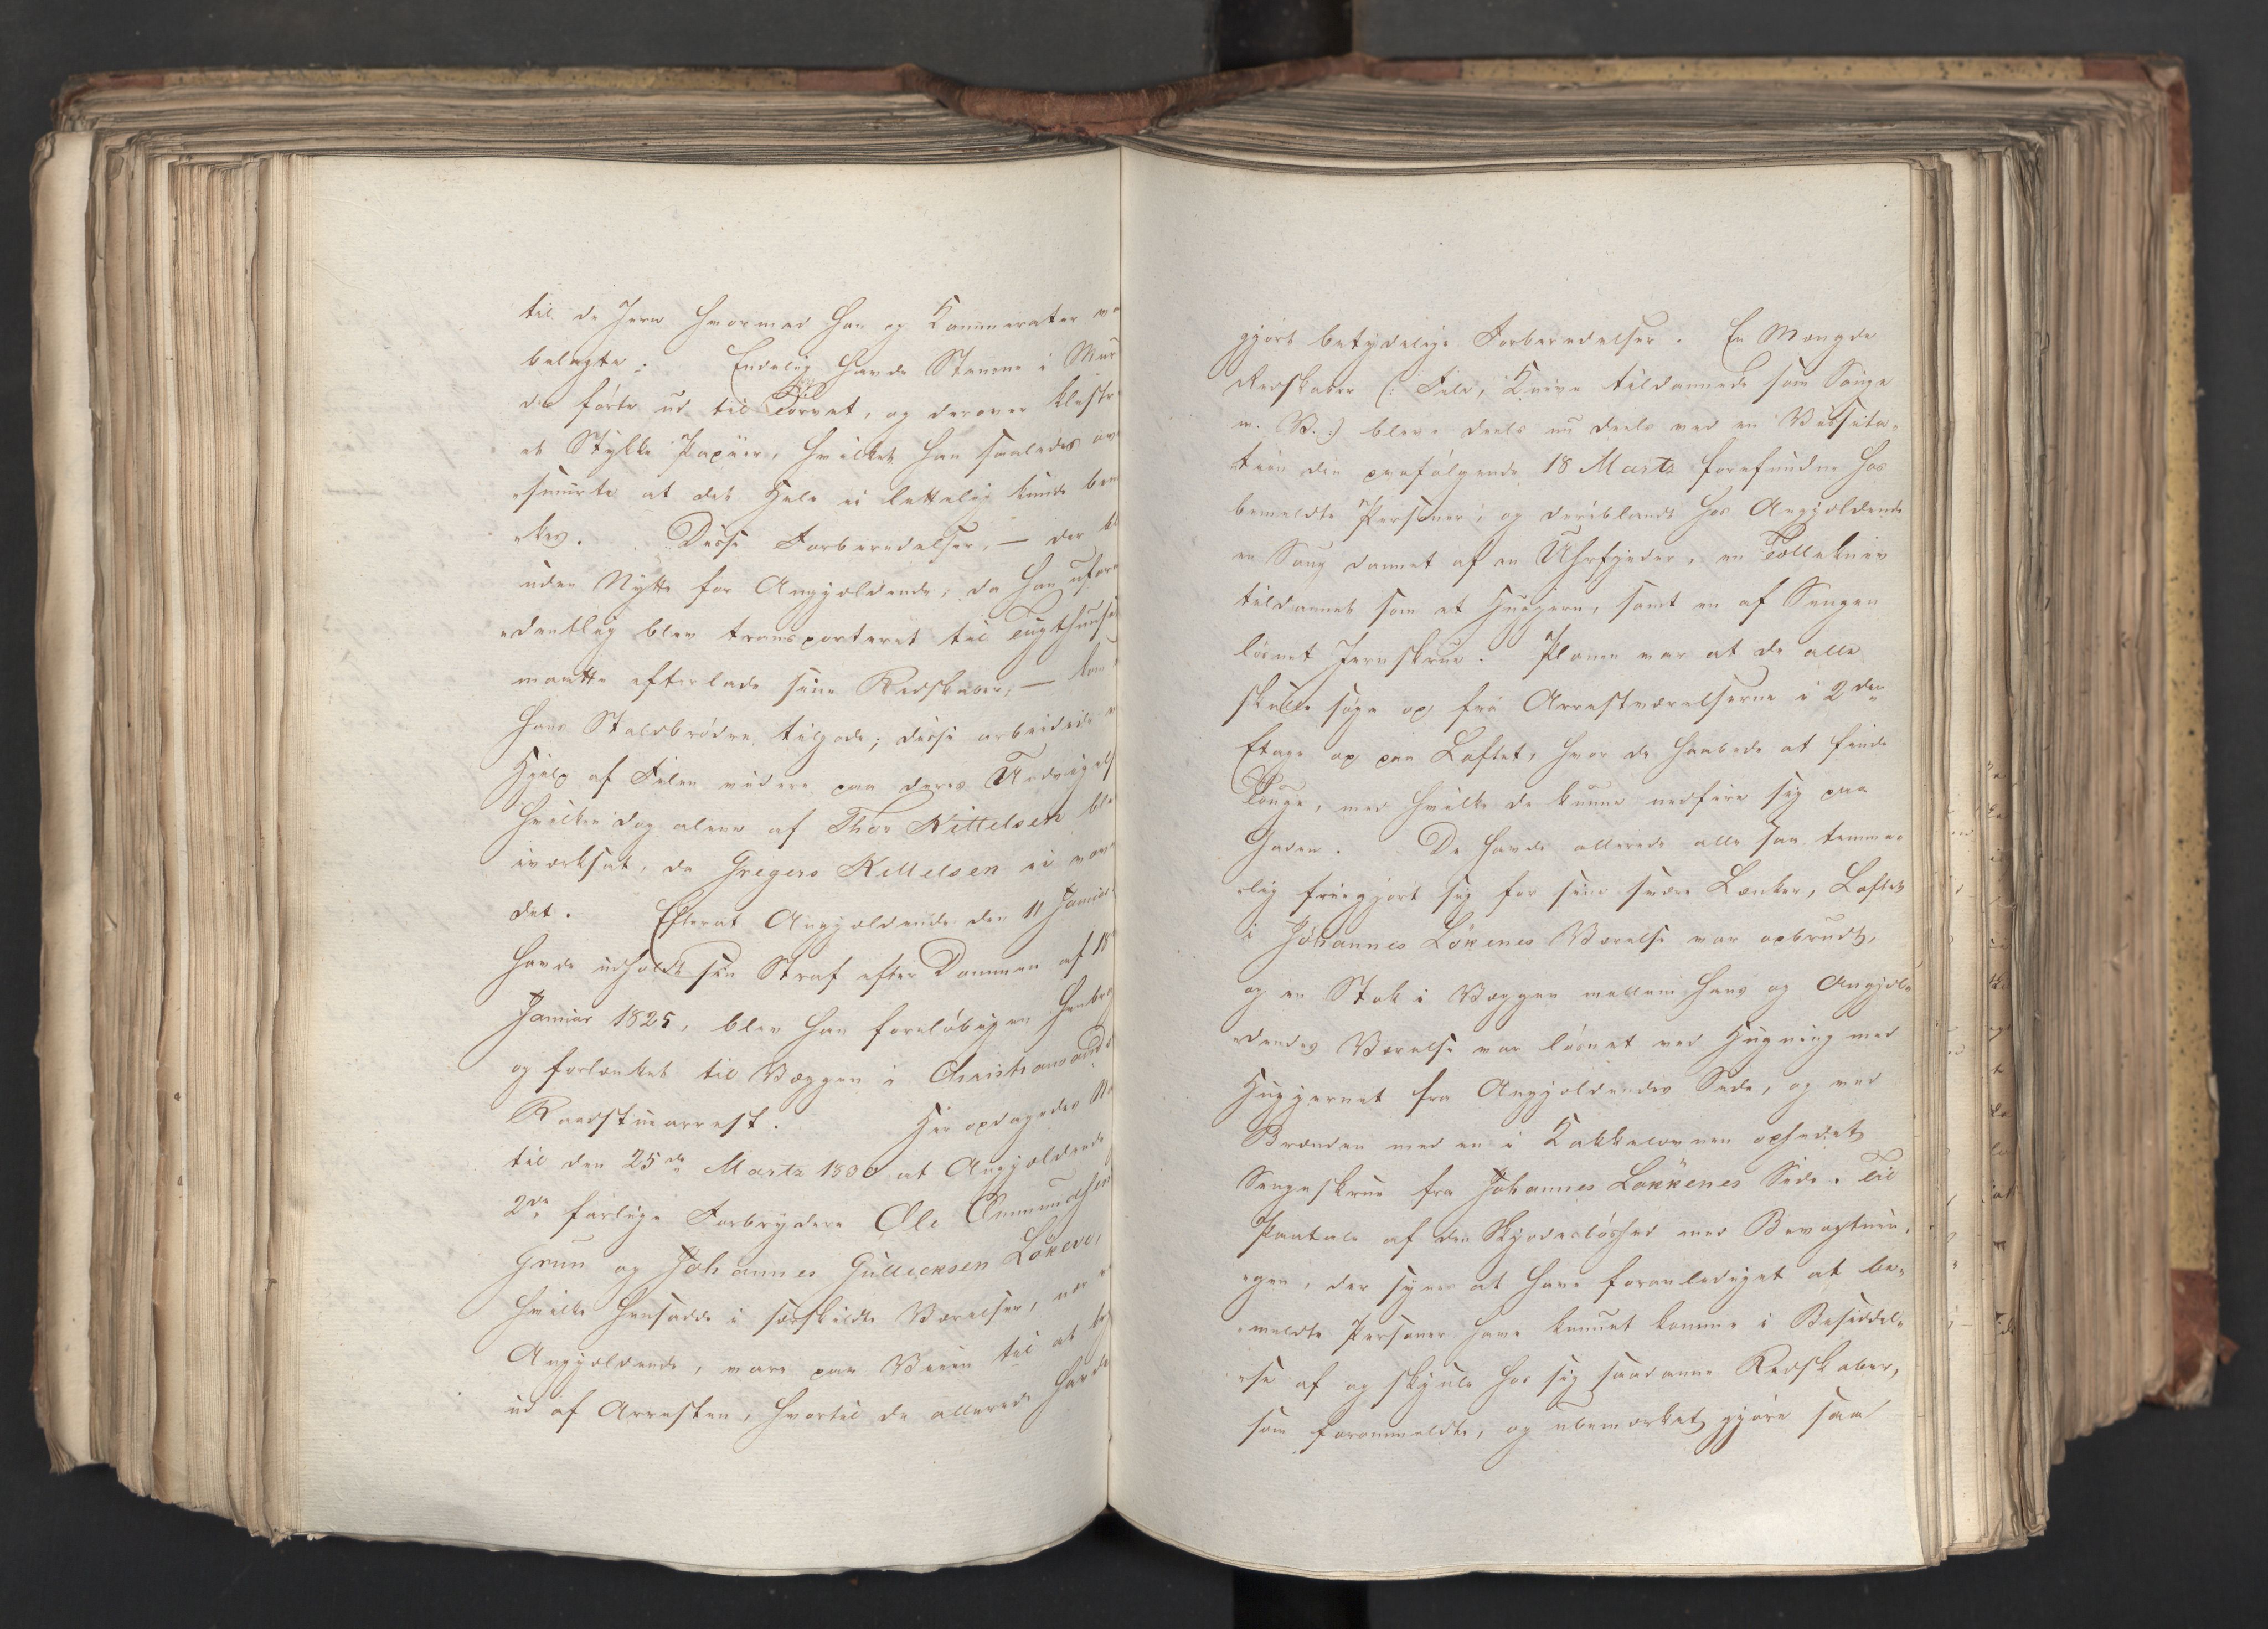 til de Jern hvormed han og Kammerater va
belagte. Endelig havde Stenene i Mur
de førte ud til Torvet, og derover klistr
et Stykke Papiir, hvilket han saaledes ov
smurte at det Hele ei lettelig kunde bem
kes. Disse Forberedelser, — der bl
uden Nytte for Angjældende, da han ufor
dentlig blev transporteret til Tugthuset
maatte efterlade sine Redskaber, — kom
hans Staldbrødre tilgode; disse arbeidede
Hjelp af Filen videre paa deres Undvigels
hvilken dog alene af Thor Kittelsen ble
iværksat, da Gregers Kittelsen ei vov
det. Efterat Angjældende den 11 Januar
havde udholdt sin Straf efter Dommen af 18
Januar 1825, blev han foreløbigen henbra
og forlænket til Væggen i Christiansands
Raadstuearrest. Her opdagedes Na
til den 25de Martz 1830 at Angjældende
2de farlige Forbrydere Ole Ommundsen
Grun og Johannes Gullicksen Løkene,
hvilke hensadde i særskildte Værelser, 
Angjældende, vare paa Veien til at br
ud af Arresten, hvortil de allerede havde
gjort betydelige Forberedelser. En Mængde
Redskaber (: Fiil, Knive tildannede som Sauge
m. V. :) bleve deels nu deels ved en Visita-
tion den paafølgende 18 Marts forefundne hos
bemeldte Personer, og deriblandt hos Angjældende
en Saug dannet af en Uhrfjeder, en Tællekniv
tildannet som et Hugjern, samt en af Sengen
løsnet Jernskrue. Planen var at de alle
skulle søge op fra Arrestværelserne i 2den
Etage op paa Loftet, hvor de haabede at finde
Touge, med hvilke de kunne nedfire sig paa
Gaden. De havde allerede alle saa temme-
lig friegjort sig for sine svære Lænker, Loftet
i Johannes Løkenes Værelse var opbrudt,
og en Stok i Væggen mellem hans og Angjæl-
dendes Værelse var løsnet ved Hugning med
Hugjernet fra Angjældendes Side, og ved
Brænden med en i Kakkelovnen ophedet
Sengeskrue fra Johannes Løkkenes Side. Til
Paatale af den Skjødesløshed med Bevogtnin-
gen, der synes at have foranlediget at be-
meldte Personer have kunnet komme i Besiddel-
se af og skjule hos sig saadanne Redskaber,
som forommeldte, og ubemærket gjøre saa